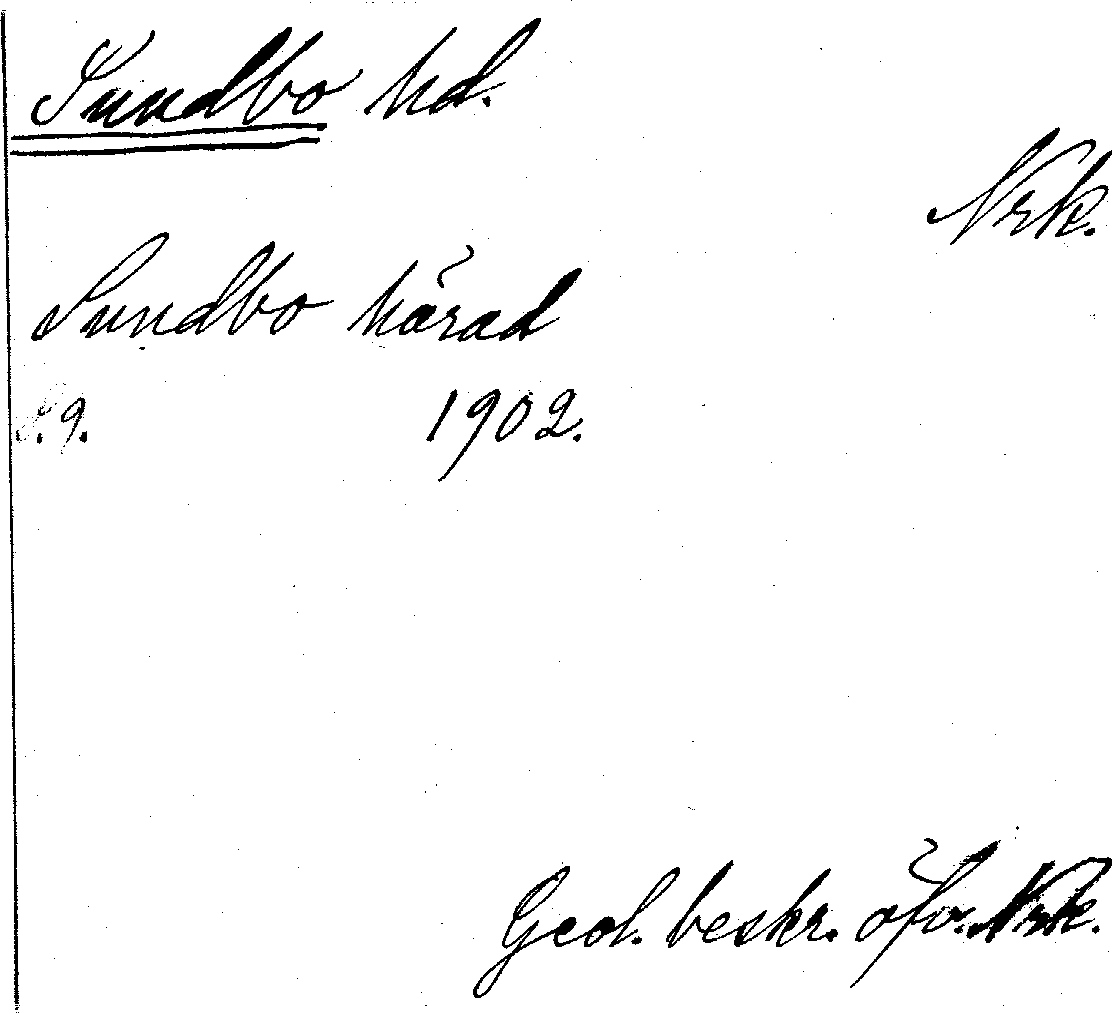 Sundbo hd.
Nrk.
Sundbo härad
S. 9. 1902.
Geol. beskr. öfv. Nrk.